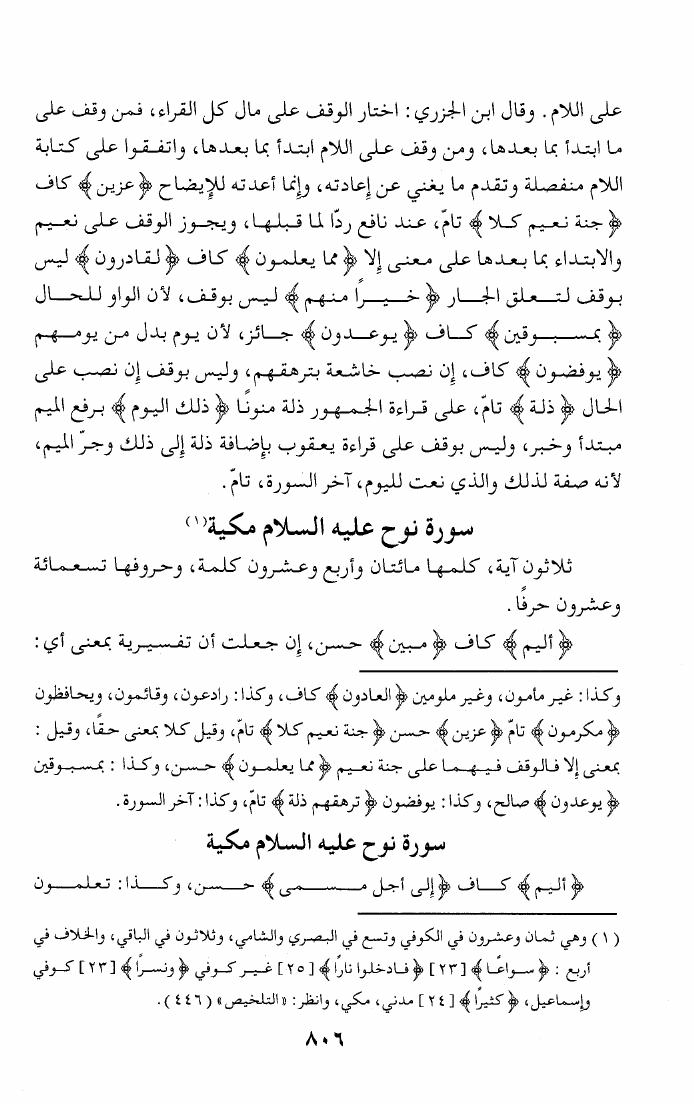 على اللام. وقال ابن الجزري: اختار الوقف على مال كل القراء، فمن وقف على
ما ابتدأ بما بعدها، ومن وقف على اللام ابتدأ بما بعدها، واتفقوا على كتابة
اللام منفصلة وتقدم ما يغني عن إعادته، وإنما أعدته للإيضاح ﴿ عزين ﴾ كاف
﴿ جنة نعيم كلا ﴾ تامّ، عند نافع ردّا لما قبلها، ويجوز الوقف على نعيم
والابتداء بما بعدها على معنى إلا ﴿ مما يعلمون ﴾ كاف ﴿ لقادرون ﴾ ليس
بوقف لتعلق الجار ﴿ خيرًا منهم ﴾ ليس بوقف، لأن الواو للحال
﴿ بمسبوقين ﴾ كاف ﴿ يوعدون ﴾ جائز، لأن يوم بدل من يومهم
﴿ يوفضون ﴾ كاف، إن نصب خاشعة بترهقهم، وليس بوقف إن نصب على
الحال ﴿ ذلة ﴾ تامّ، على قراءة الجمهور ذلة منونًا ﴿ ذلك اليوم ﴾ برفع الميم
مبتدأ وخبر، وليس بوقف على قراءة يعقوب بإضافة ذلة إلى ذلك وجرّ الميم،
لأنه صفة لذلك والذي نعت لليوم، آخر السورة، تامّ.
سورة نوح عليه السلام مكية(١)
ثلاثون آية، كلمها مائتان وأربع وعشرون كلمة، وحروفها تسعمائة
وعشرون حرفًا.
﴿ أليم ﴾ كاف ﴿ مبين ﴾ حسن، إن جعلت أن تفسيرية بمعنى أي:
وكذا: غير مأمون، وغير ملومين ﴿ العادون ﴾ كاف، وكذا: رادعون، وقائمون، ويحافظون
﴿ مكرمون ﴾ تامّ ﴿ عزين ﴾ حسن ﴿ جنة نعيم كلا ﴾ تامّ، وقيل كلا بمعنى حقًا، وقيل:
بمعنى إلا فالوقف فيهما على جنة نعيم ﴿ مما يعلمون ﴾ حسن، وكذا: بمسبوقين
﴿ يوعدون ﴾ صالح، وكذا: يوفضون ﴿ ترهقهم ذلة ﴾ تامّ، وكذا: آخر السورة.
سورة نوح عليه السلام مكية
﴿ أليم ﴾ كاف ﴿ إلى أجل مسمى ﴾ حسن، وكذا: تعلمون
(١) وهي ثمان وعشرون في الكوفي وتسع في البصري والشامي، وثلاثون في الباقي، والخلاف في
أربع: ﴿ سواعًا ﴾ [٢٣] ﴿ فادخلوا نارًا ﴾ [٢٥] غير كوفي ﴿ ونسرًا ﴾ [٢٣] كوفي
وإسماعيل، ﴿ كثيرًا ﴾ [٢٤] مدني، مكي، وانظر: «التلخيص» (٤٤٦).
٨٠٦